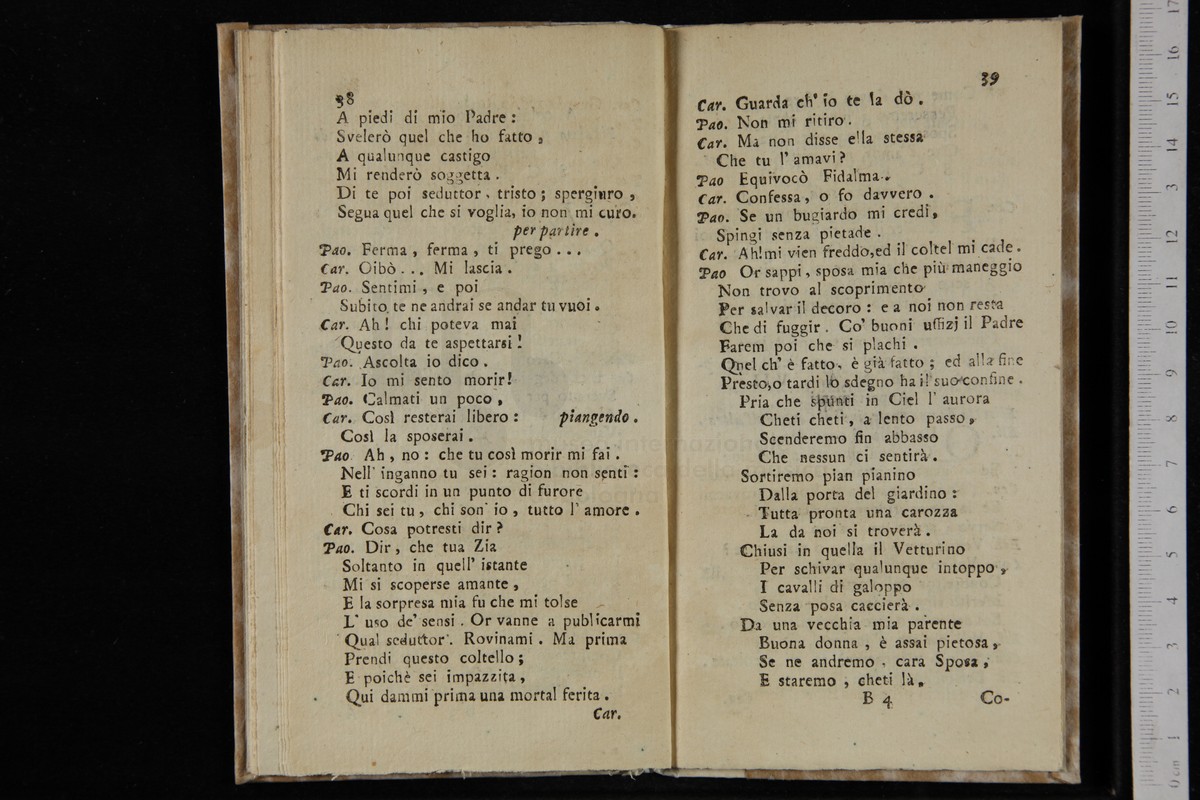 38
A piedi di mio Padre :
Svelerò quel che ho fatto ,
A qualunque castigo
Mi renderò soggetta .
Di te poi seduttor , tristo ; spergiuro ,
Segua quel che si voglia, io non mi curo.
per partire .
Pao. Ferma , ferma , ti prego . . .
Car. Oibò . . . Mi lascia .
Pao. Sentimi , e poi
Subito te ne andrai se andar tu vuoi .
Car. Ah ! chi poteva mai
Questo da te aspettarsi !
Pao. Ascolta io dico .
Car. Io mi sento morir !
Pao. Calmati un poco ,
Car. Così resterai libero : piangendo .
Così la sposerai .
Pao Ah , no : che tu così morir mi fai .
Nell' inganno tu sei : ragion non senti :
E ti scordi in un punto di furore
Chi sei tu , chi son' io , tutto l' amore .
Car. Cosa potresti dir ?
Pao. Dir , che tua Zia
Soltanto in quell' istante
Mi si scoperse amante ,
E la sorpresa mia fu che mi tolse
L' uso de' sensi . Or vanne a publicarmi
Qual seduttor . Rovinami . Ma prima
Prendi questo coltello ;
E poichè sei impazzita ,
Qui dammi prima una mortal ferita .
Car.
39
Car. Guarda ch' io te la dò .
Pao. Non mi ritiro .
Car. Ma non disse ella stessa
Che tu l' amavi ?
Pao Equivocò Fidalma .
Car. Confessa , o fo davvero .
Pao. Se un bugiardo mi credi ,
Spingi senza pietade .
Car. Ah! mi vien freddo, ed il coltel mi cade .
Pao Or sappi , sposa mia che più maneggio
Non trovo al scoprimento
Per salvar il decoro : e a noi non resta
Che di fuggir . Co' buoni uffizj il Padre
Farem poi che si plachi .
Quel ch' è fatto , è già fatto ; ed alla fine
Presto, o tardi lo sdegno ha il suo confine .
Pria che spunti in Ciel l' aurora
Cheti cheti , a lento passo ,
Scenderemo fin abbasso
Che nessun ci sentirà .
Sortiremo pian pianino
Dalla porta del giardino :
Tutta pronta una carozza
La da noi si troverà .
Chiusi in quella il Vetturino
Per schivar qualunque intoppo ,
I cavalli di galoppo
Senza posa caccierà .
Da una vecchia mia parente
Buona donna , è assai pietosa ,
Se ne andremo , cara Sposa ,
E staremo , cheti là .
B 4 Co-